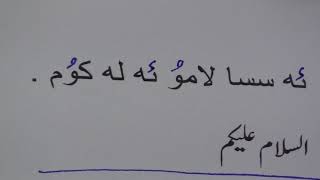 ئە سسا لامۇ ئە لە كۇم .
السلام عليكم